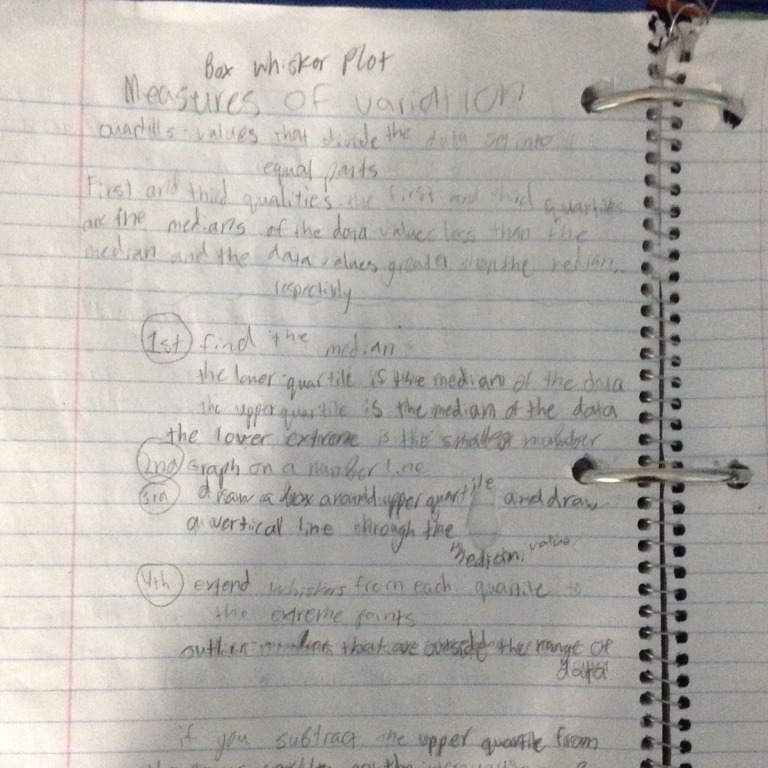 Box Whisker Plot
Measures of variation
quartills values that divide the data set into
equal parts
First and third qualities the first and third quartiles
are the medians of the data values less than the
median and the data values greater than the median,
respectivly
1st find the median
the lower quartile is the median of the data
the upper quartile is the median of the data
the lower extreme is the smallest number
2nd graph on a number line
3rd draw a box around upper quartile and draw
a vertical line through the
median value
4th extend whiskers from each quartile to
the extreme points
outlier numbers that are outside the range of
data
if you subtract the upper quartile from